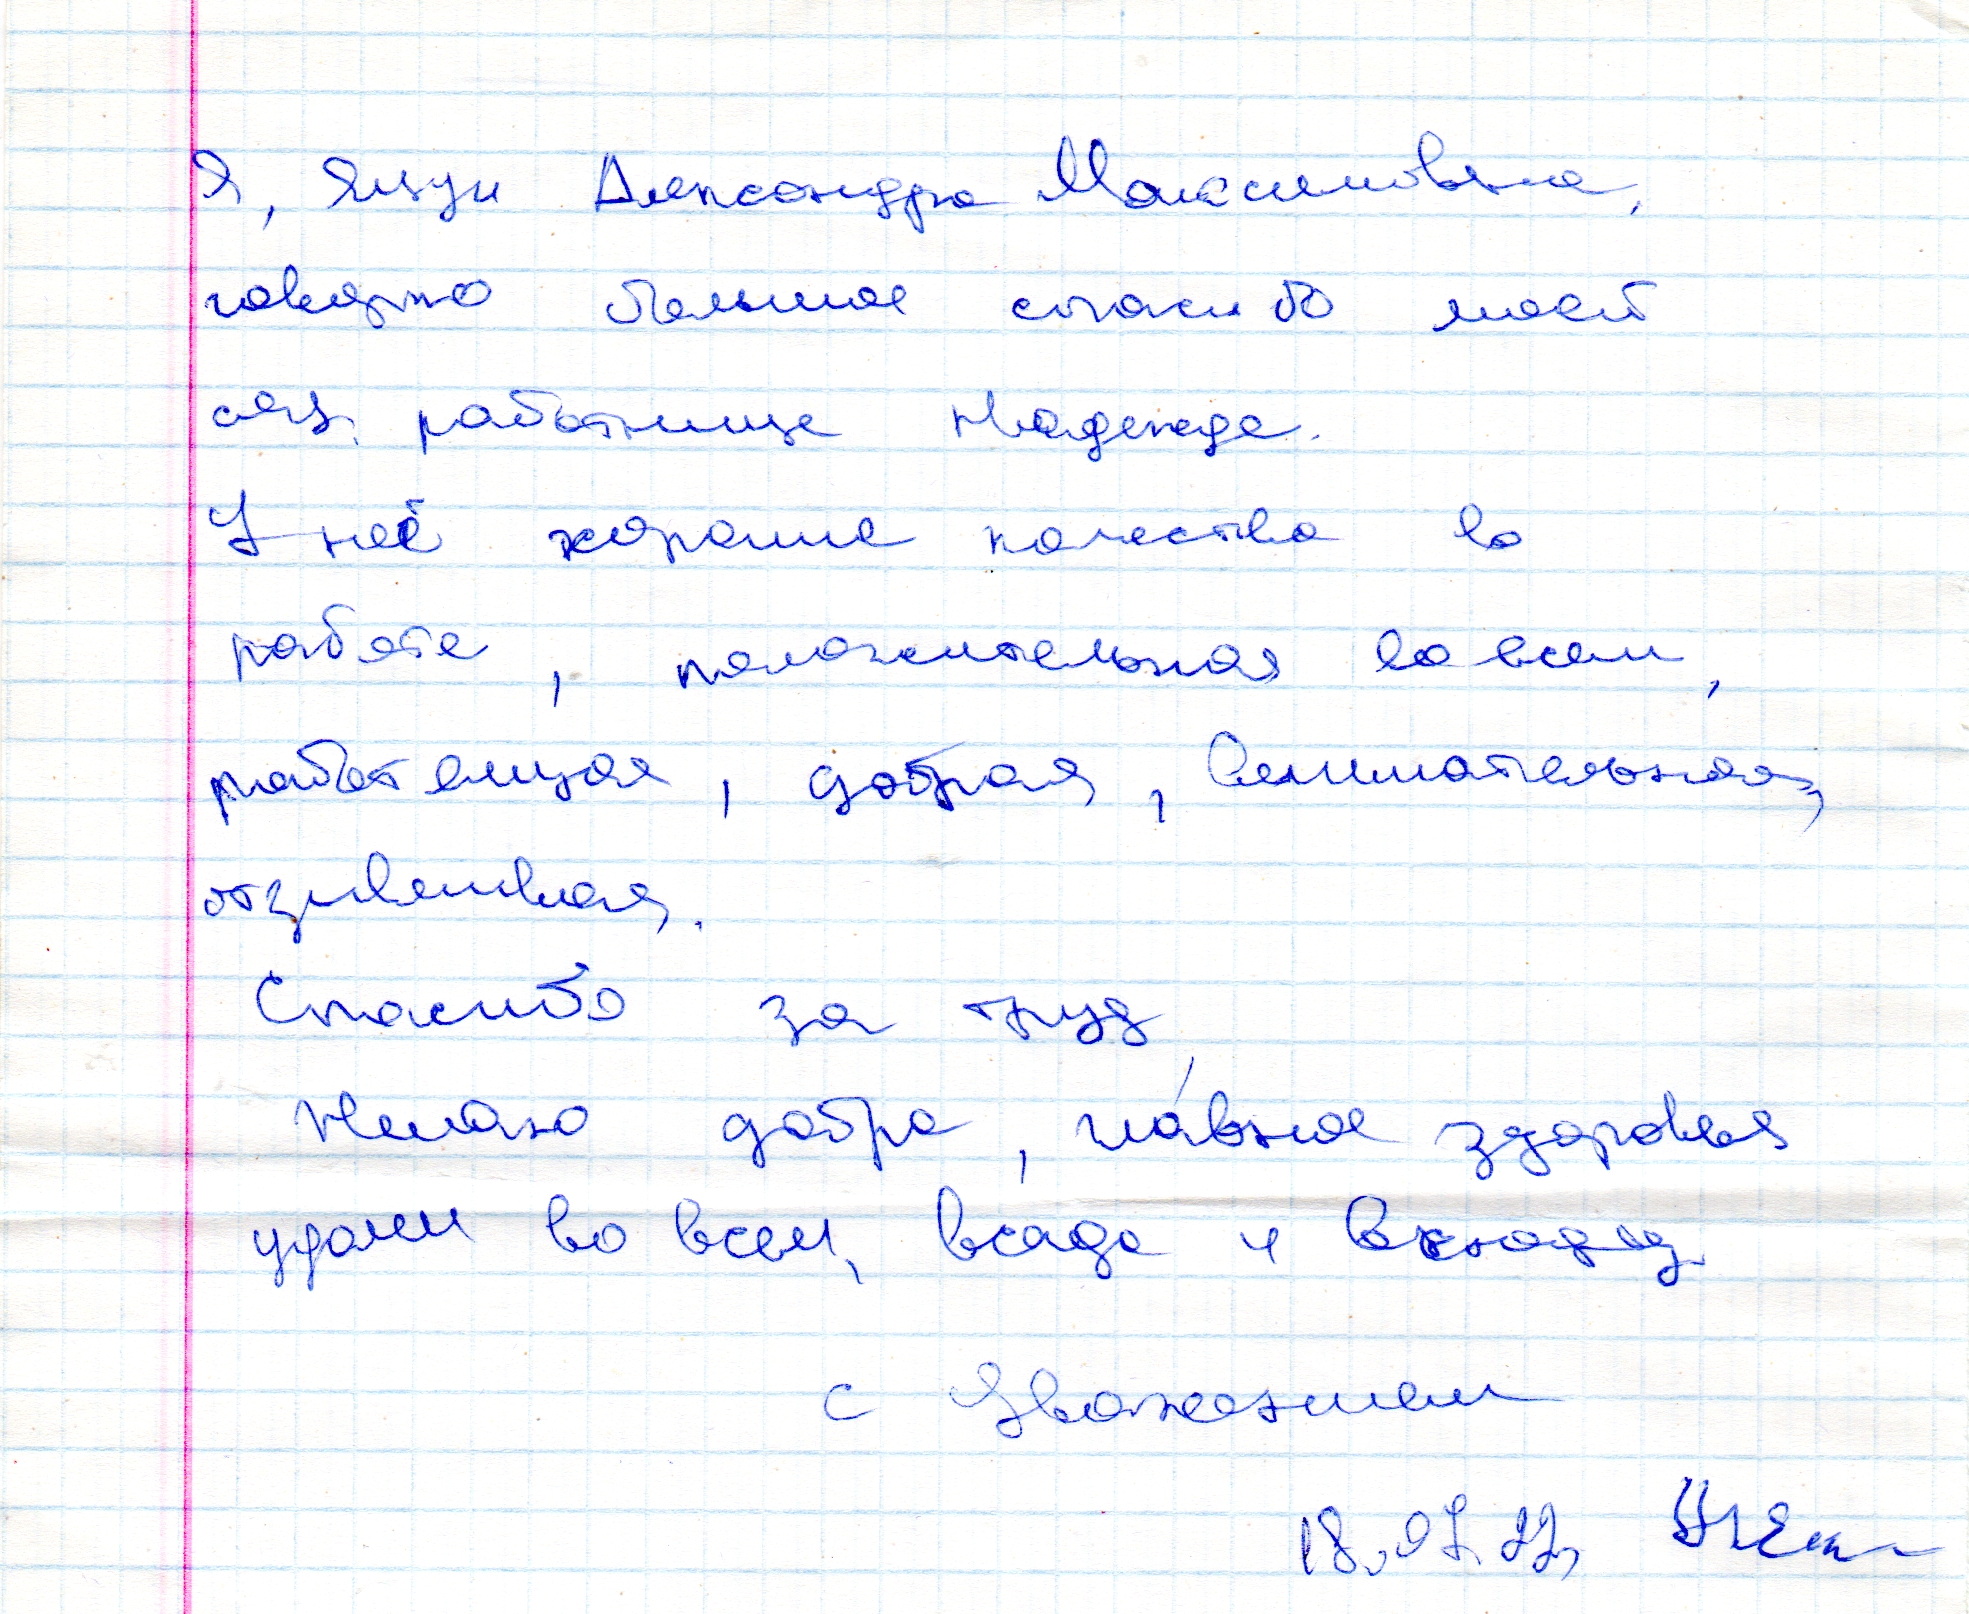 Я, Яцун Александра Максимовна,
говорю большое спасибо моей
соц. работнице Надежде.
У неё хорошие качества во
работе, положительная во всем,
работящая, добрая, внимательная,
отзывчивая.
Спасибо за труд
Желаю добра, главное здоровья
удачи во всем, всегда и
с Уважением
18.07.22,